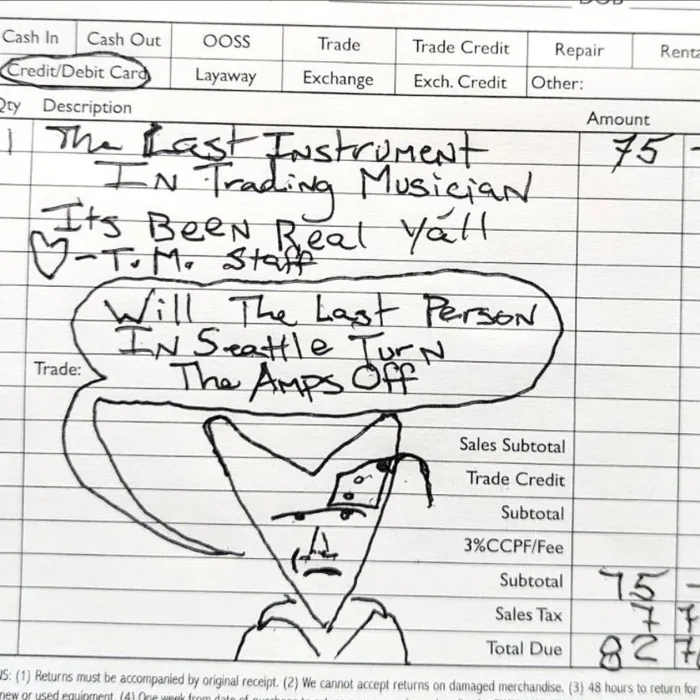 Cash In Cash Out OOSS Trade Trade Credit Repair
Credit/Debit Card Layaway Exchange Exch. Credit Other:
Qty Description Amount
1 The Last Instrument 75 -
In Trading Musician
Its Been Real Yáll
♡ - T.M. Staff
Will The Last Person
In Seattle Turn
Trade: The Amps Off
Sales Subtotal
Trade Credit
Subtotal
3%CCPF/Fee
Subtotal 75 -
Sales Tax 7
Total Due 82
(1) Returns must be accompanied by original receipt. (2) We cannot accept returns on damaged merchandise. (3) 48 hours to return
new or used equipment. (4) One week from date of purchase to